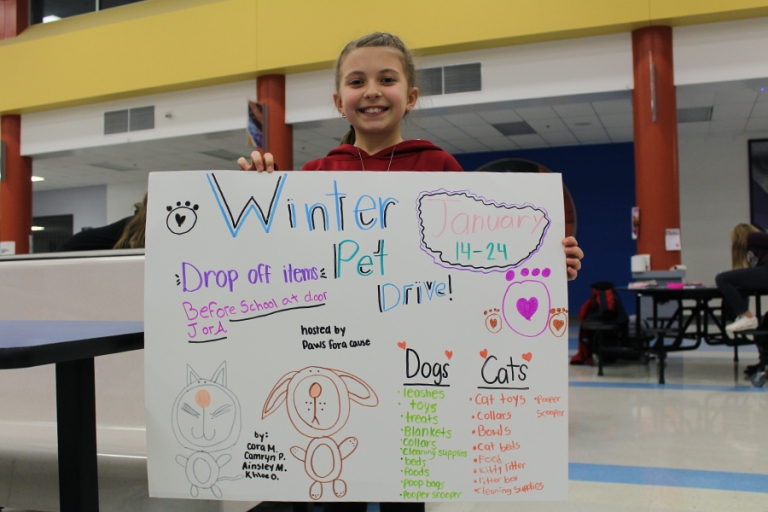 Winter
Pet
Drive!
January
14-24
Drop off items
Before School at door
J or A
hosted by
Paws for a cause
Dogs
• leashes
• toys
• treats
• Blankets
• collars
• Cleaning supplies
• beds
• foods
• poop bags
• Pooper scooper
Cats
• Cat toys
• Collars
• Bowls
• Cat beds
• Food
• Kitty litter
• litter box
• Cleaning supplies
• Pooper
Scooper
by:
Cora M.
Camryn P.
Ainsley M.
Khloe O.